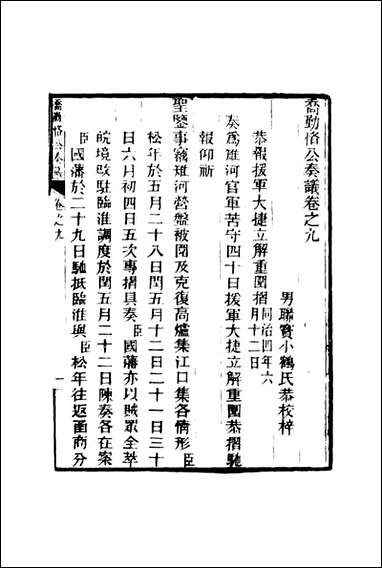 喬勤恪公奏議卷之九
男聯寶小鶴氏恭校梓
恭報援軍大捷立解重圍摺同治四年六月十二日
奏爲雉河官軍苦守四十日援軍大捷立解重圍恭摺馳
報仰祈
聖鑒事竊雉河營盤被圍及克復高爐集江口集各情形臣
松年於五月二十八日閏五月十二日二十一日三十
日六月初四日五次專摺具奏臣國藩亦以賊眾全萃
皖境改駐臨淮調度於閏五月二十二日陳奏各在案
臣國藩於二十九日馳抵臨淮與臣松年往返函商分
喬勤恪公奏議
卷之九
一